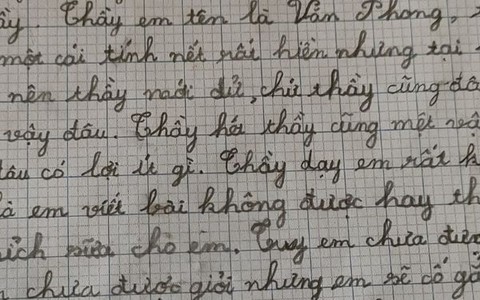 ầy. Thầy em tên là Văn Phong,
một cái tính nết rất hiền nhưng tại
nên thầy mới dữ, chứ thầy cũng đâ
vậy đâu. Thầy hét thầy cũng mệt
đâu có lợi ít gì. Thầy dạy em rất
là em viết bài không được hay th
ích sửa cho em. Tuy em chưa đượ
chưa được giỏi nhưng em sẽ cố gắ